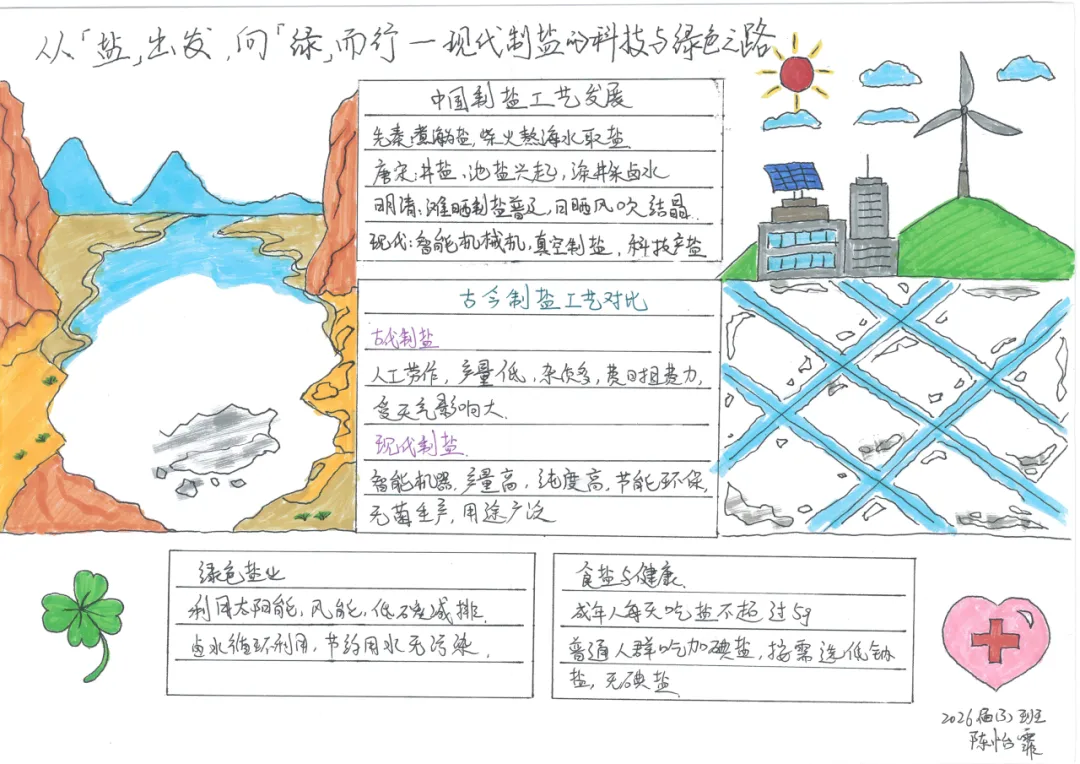 从「盐」出发,向「绿」而行—现代制盐的科技与绿色之路
中国制盐工艺发展
先秦:煮海盐,柴火熬海水取盐
唐宋:井盐、池盐兴起,深井采卤水
明清:滩晒制盐普及,日晒风吹结晶.
现代:智能机械机,真空制盐,科技产盐
古今制盐工艺对比
古代制盐
人工劳作,产量低,杂质多,费时费力,
受天气影响大.
现代制盐
智能机器,产量高,纯度高,节能环保,
无菌生产,用途广泛
绿色盐业
利用太阳能,风能,低碳减排.
卤水循环利用,节约用水无污染.
食盐与健康.
成年人每天吃盐不超过5g
普通人群吃加碘盐,按需选低钠
盐,无碘盐
2026届(3)班
陈怡霏